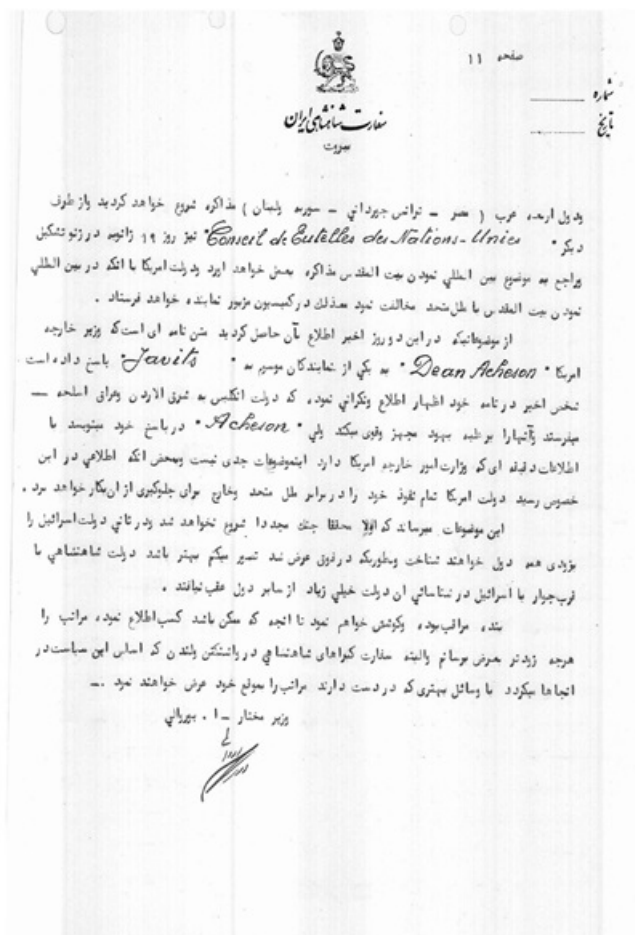 صفحه ۱۱
شماره
تاریخ
سفارت شاهنشاهی ایران
بیروت
ودول اربعه عرب ( مصر - ترانس جوردانی - سوریه ولبنان ) مذاکره شروع خواهد گردید واز طرف
دیگر " Conseil de Tutelles des Nations-Unies " نیز روز ۱۹ ژانویه در ژنو تشکیل
وراجع به موضوع بین المللی نمودن بیت المقدس مذاکره بعمل خواهد اورد ودولت امریکا با انکه در بین المللی
نمودن بیت المقدس با ملل متحد مخالفت نمود معذلک در کمیسیون مزبور نماینده خواهد فرستاد .
از موضوعاتیکه در این دو روز اخیر اطلاع بآن حاصل گردید متن نامه ای است که وزیر خارجه
امریکا " Dean Acheson " به یکی از نمایندگان موسوم به " Javits " پاسخ داده است
شخص اخیر در نامه خود اظهار اطلاع ونگرانی نموده که دولت انگلیس به شرق الاردن وعراق اسلحه —
میفرستد وآنهارا بر علیه یهود مجهز وقوی میکند ولی " Acheson " در پاسخ خود مینویسد با
اطلاعات دقیقه ای که وزارت امور خارجه امریکا دارد اینموضوعات جدی نیست وبمحض انکه اطلاعی در این
خصوص رسید دولت امریکا تمام نفوذ خود را در برابر ملل متحد وخارج برای جلوگیری از ان بکار خواهد برد .
این موضوعات میرساند که اولا محققا جنگ مجددا شروع نخواهد شد ودر ثانی دولت اسرائیل را
بزودی همه دول خواهند شناخت وبطوریکه در فوق عرض شد تصور میکنم بهتر باشد دولت شاهنشاهی با
قرب جوار با اسرائیل در شناسائی ان دولت خیلی زیاد از سایر دول عقب نیافتند .
بنده مراقب بوده وکوشش خواهم نمود تا انچه که ممکن باشد کسب اطلاع نموده مراتب را
هرچه زودتر بعرض برسانم والبته سفارت کبراهای شاهنشاهی در واشنگتن ولندن که اساس این سیاست در
انجاها میگردد با وسائل بهتری که در دست دارند مراتب را بموقع خود عرض خواهند نمود .—
وزیر مختار - ا .